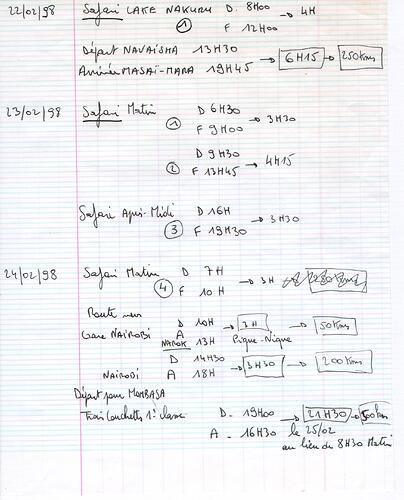 22/02/98 Safari LAKE NAKURU D. 8H00 → 4H
① F 12H00
Départ NAVAÏSHA 13H30
Arrivée MASAÏ-MARA 19H45 → 6H15 → 250 Kms
23/02/98 Safari Matin D 6H30
① F 9H00 → 3H30
D 9H30
② F 13H45 → 4H15
Safari Après-Midi D 16H
③ F 19H30 → 3H30
24/02/98 Safari Matin D 7H
④ F 10H → 3H
Route vers D 10H → 3H → 50 Kms
Gare NAIROBI A
NAROK 13H Pique-Nique
D 14H30
NAIROBI A 18H → 3H30 → 200 Kms
Départ pour MOMBASA
Train Couchette 1° classe D. 19H00 → 21H30 → Kms
A. 16H30 le 25/02
au lieu de 8H30 Matin